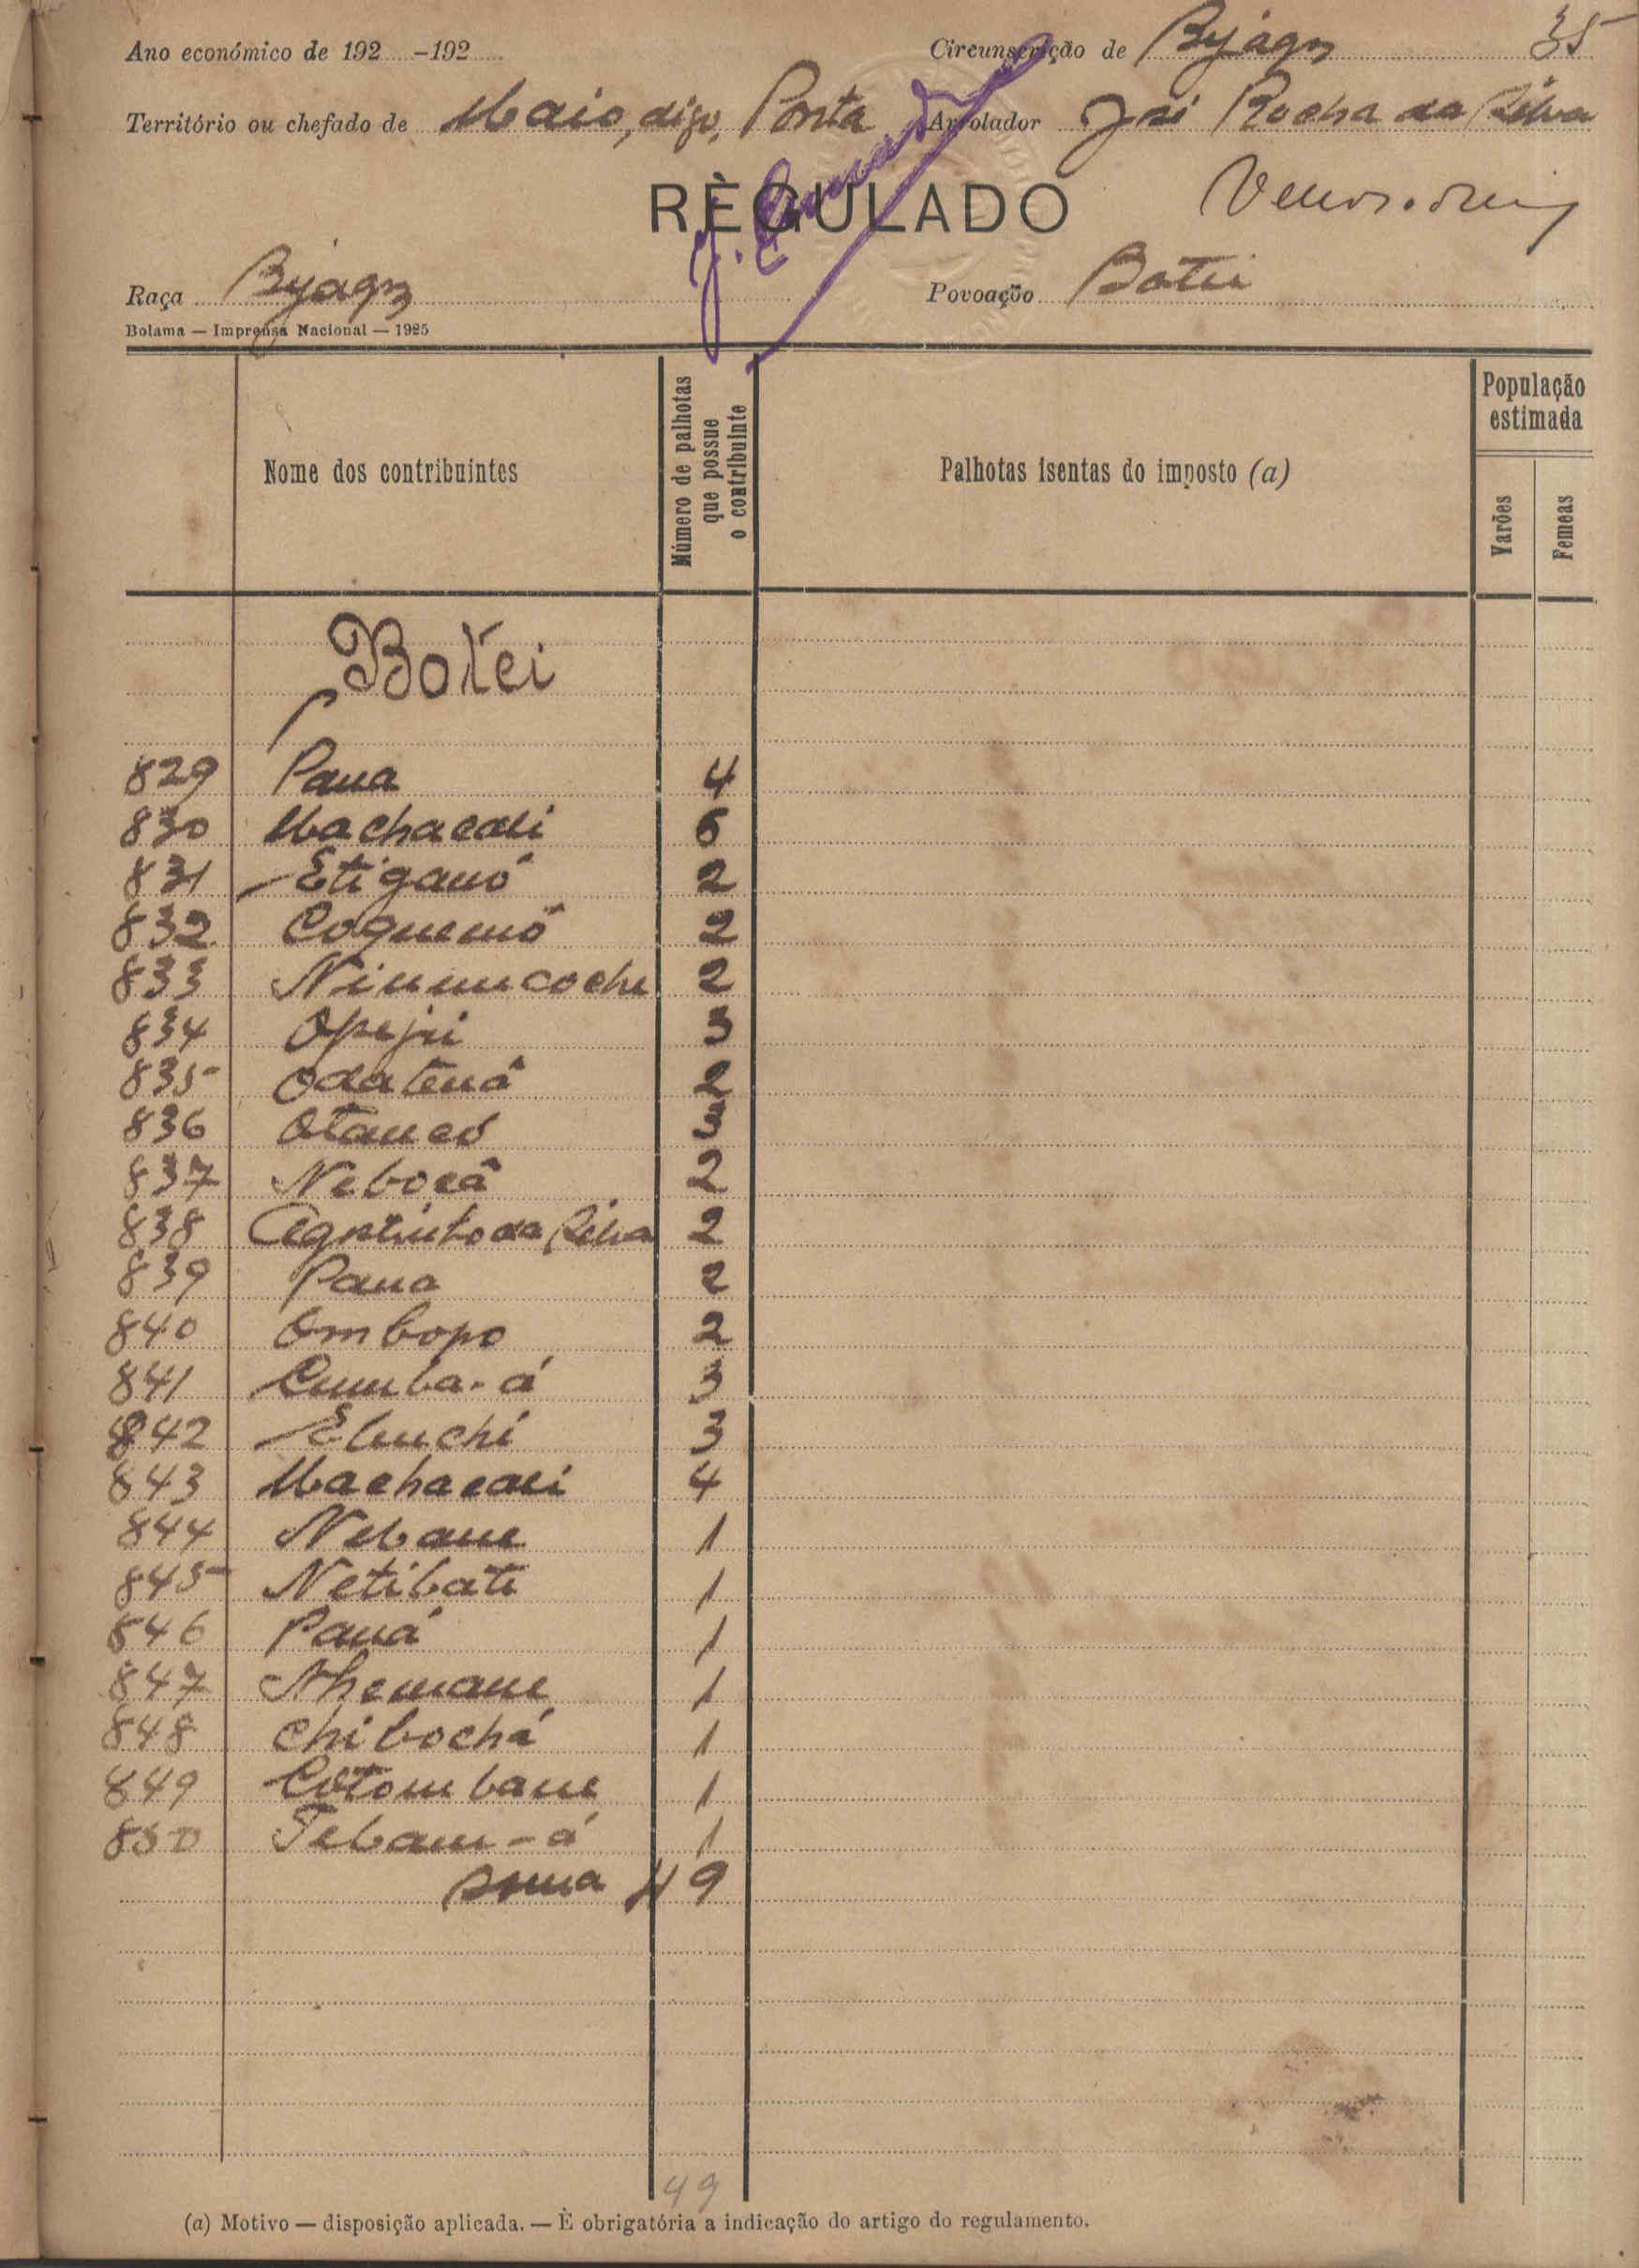 35
Ano económico de 192 -192 Circunscrição de Byagoz
Território ou chefado de Maio, digo, Ponta Arrolador José Rocha da Silva
RÈGULADO
Raça Bijagoz Povoação Botei
Bolama — Imprensa Nacional — 1925
Nome dos contribuintes
Número de palhotas que possue o contribuinte
Palhotas isentas do imposto (a)
População estimada
Varões
Femeas
Botei
829 Pana 4
830 Machacali 6
831 Etiganó 2
832 Coquemó 2
833 Ninumcoche 2
834 Opejii 3
835 Odatená 2
836 Otancó 3
837 Nebocâ 2
838 Agostinho da Silva 2
839 Pana 2
840 Ombopo 2
841 Cumba-á 3
842 Ebuchi 3
843 Machacali 4
844 Nebane 1
845 Netibate 1
846 Paná 1
847 Nhemane 1
848 Chibochá 1
849 Cotombane 1
850 Tebam-á 1
soma 49
49
(a) Motivo — disposição aplicada. — È obrigatória a indicação do artigo do regulamento.